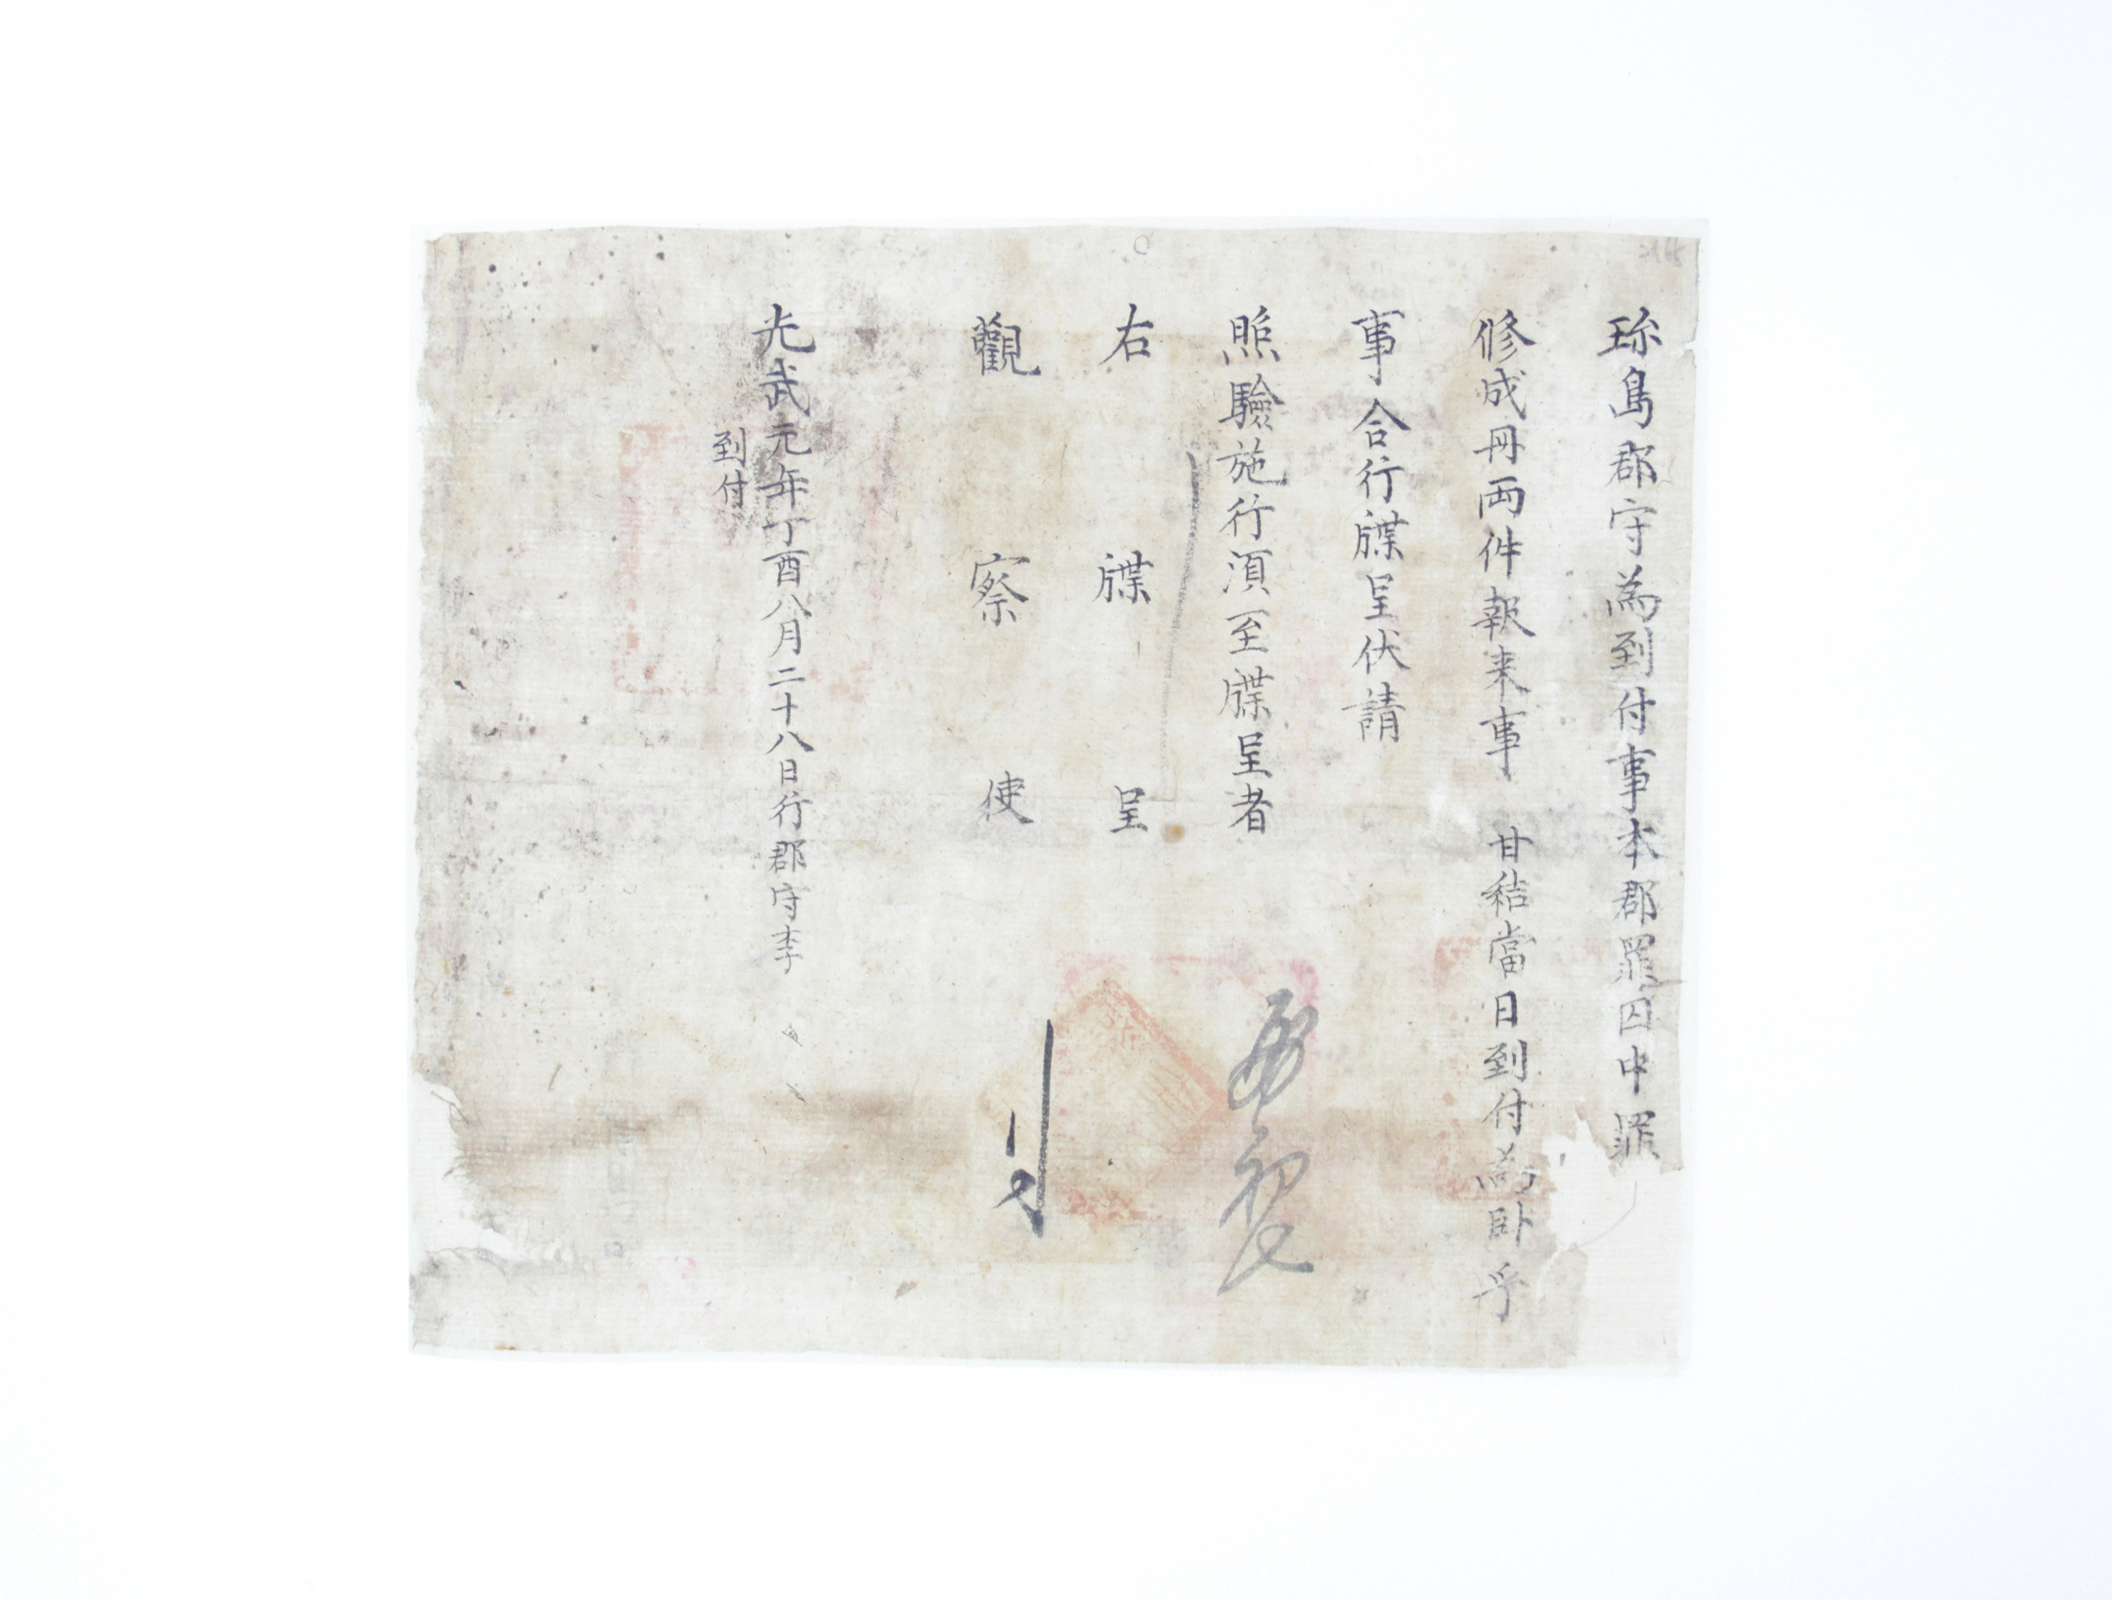 珎島郡守為到付事本郡罪囚中罪
修成冊両件報来事 甘結當日到付為卧乎
事合行牒呈伏請
照驗施行湏至牒呈者
右牒呈
觀察使
光武元年丁酉八月二十八日行郡守李
到付